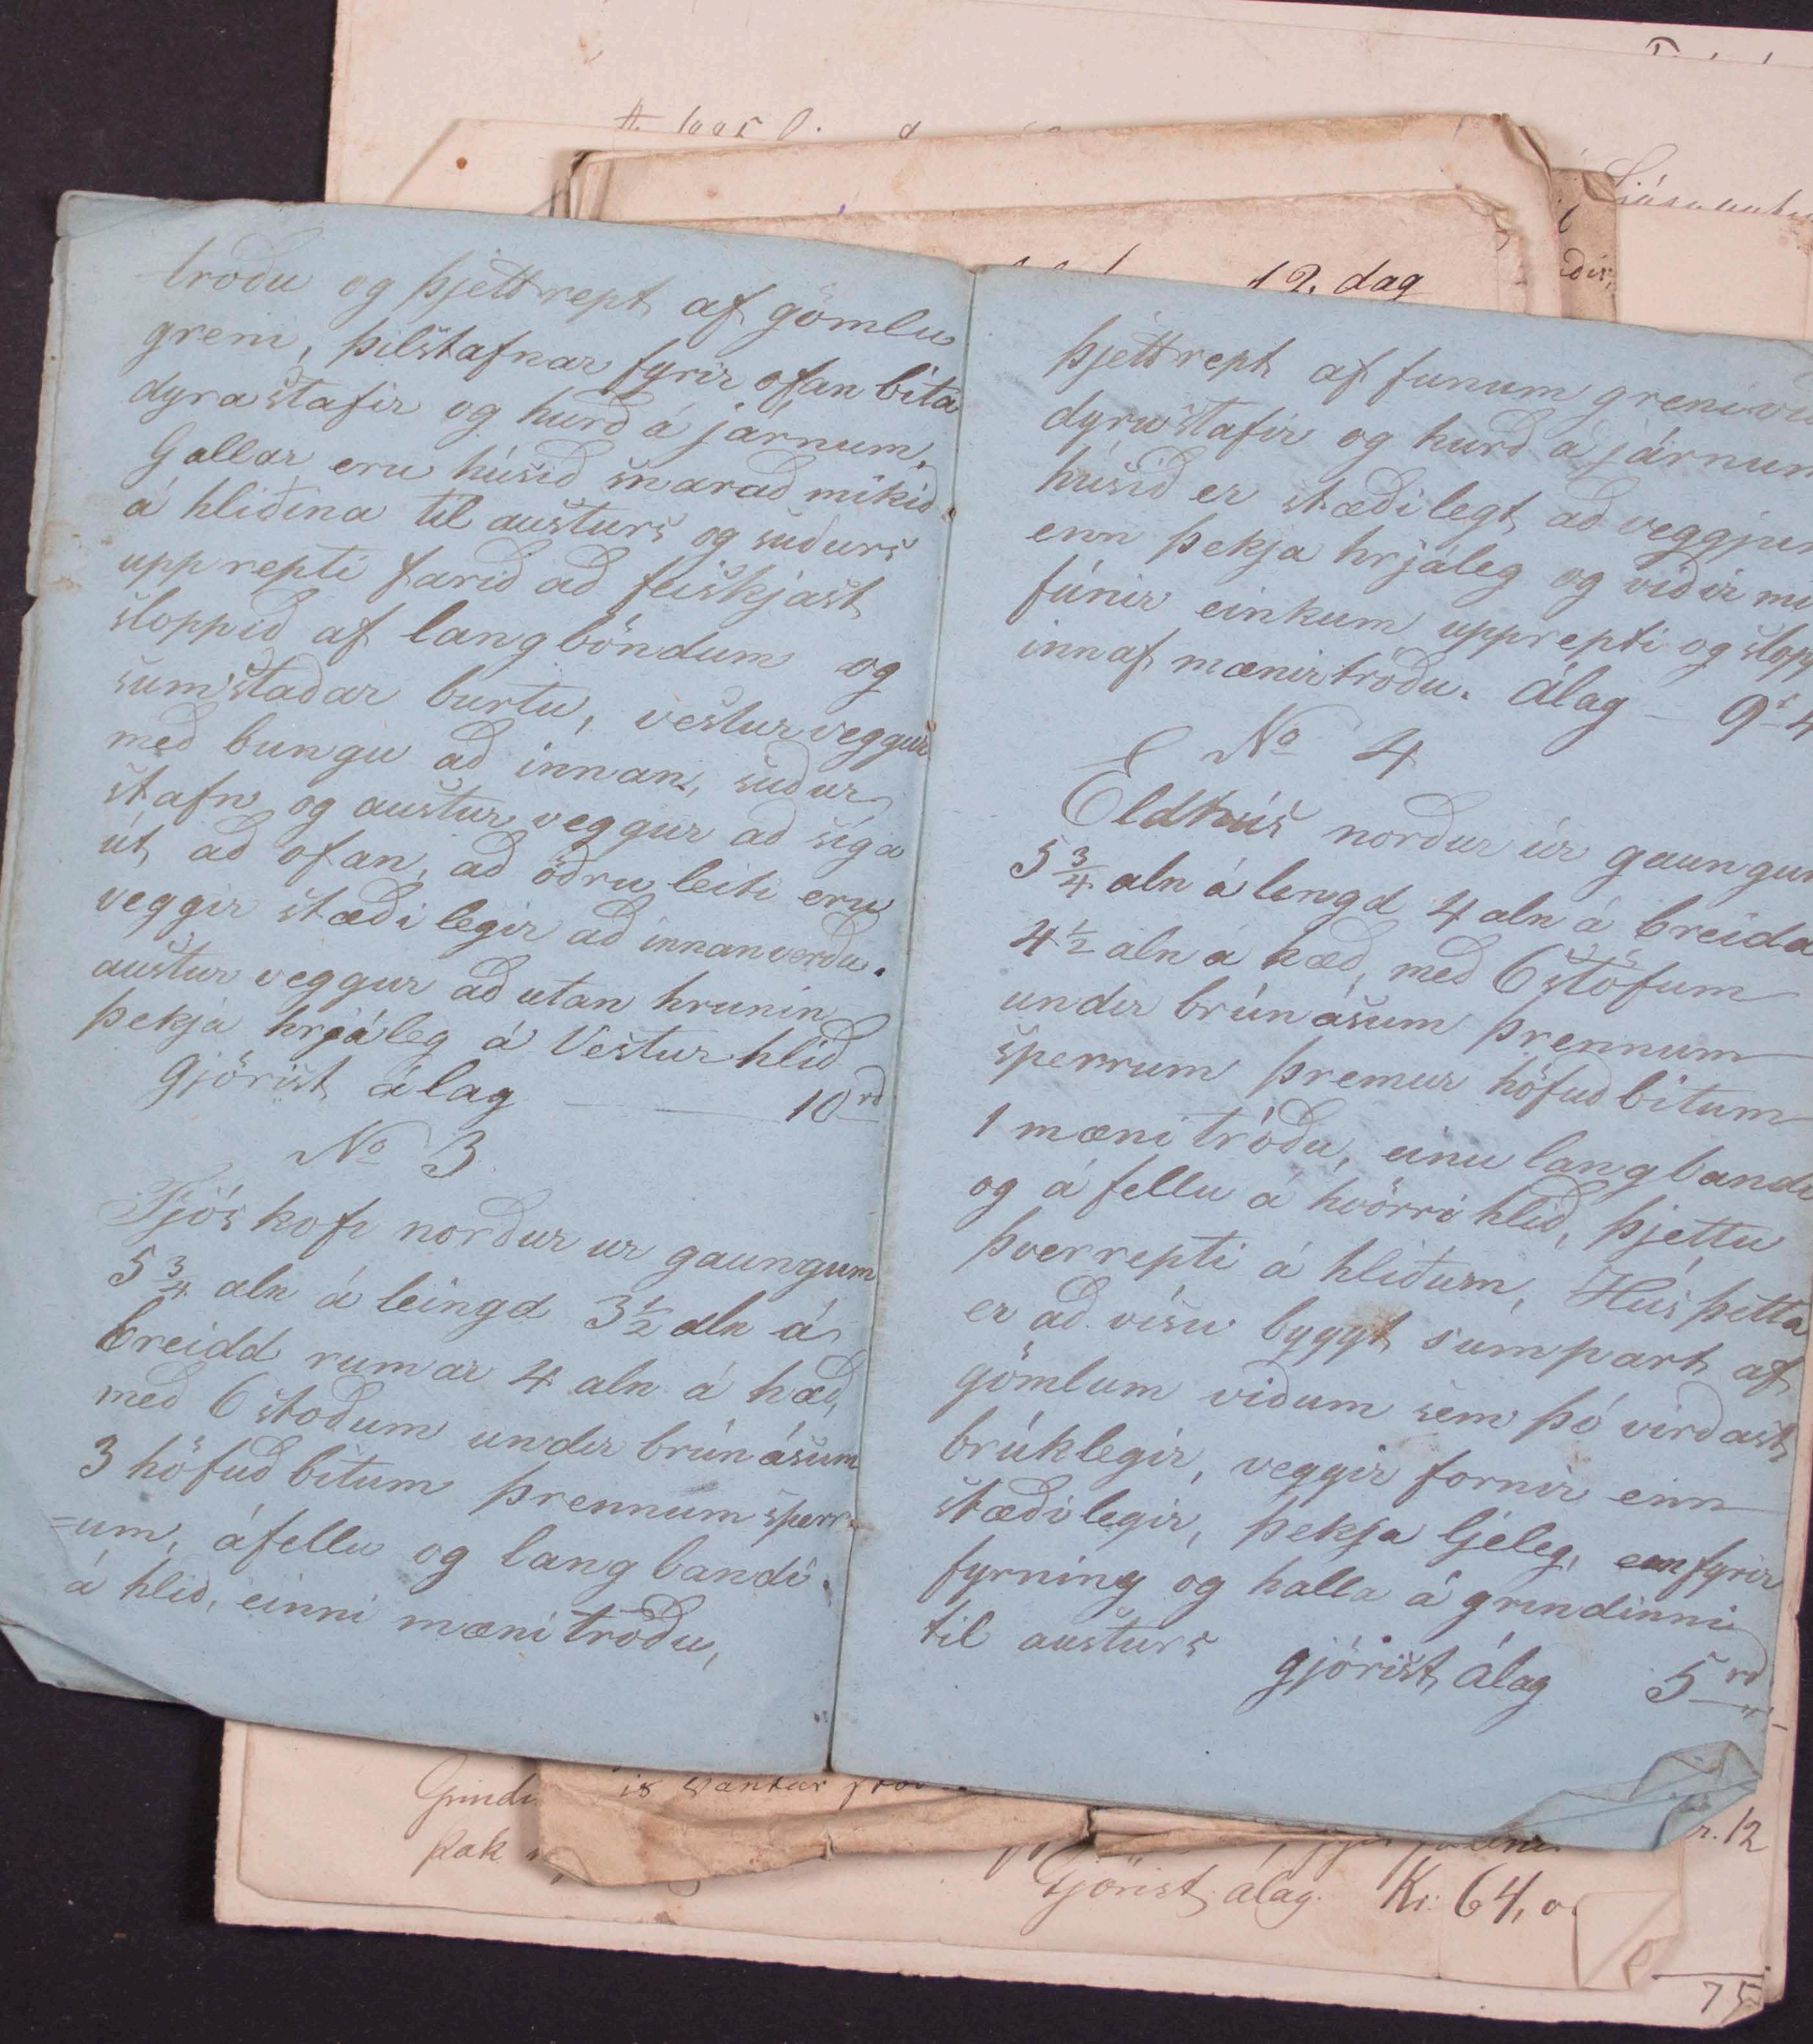 12. dag
troðu og þjettrept af gömlu
greni, þilstafnar fyrir ofan bita
dyrastafir og hurð á járnum.
Gallar eru húsið snarað mikið
á hliðina til austurs og suðurs
upprepti farið að feiskjast
sloppið af langböndum og
sumstaðar burtu, vestur veggur
með bungu að innan, suður
stafn og austur veggur að síga
út að ofan, að öðru leiti eru
veggir stæðilegir að innanverðu.
austur veggur að utan hrunin
þekja hrjáleg á Vesturhlið
Gjörist álag 10 rd
No 3
Fjóskofi norður ur gaungum
5 3/4 aln á leingd 3 1/2 aln á
breidd rumar 4 aln á hæð,
með 6 stoðum undir brúnásum
3 höfuðbitum þrennum sperr-
=um, áfellu og langbandi
á hlið, einni mænitroðu,
þjettrept af funum
dyrustafir og hurð á
húsið er stæðilegt að
enn þekja hrjáleg og viðir
fúnir einkum upprepti og
innaf mænirtróðu. Álag
No 4
Eldhús norður úr
5 3/4 aln á lengd 4 aln á
4 1/2 aln á hæð, með 6 stöfum
undir brúnásum þrennum
sperrum þremur höfuðbitum
1 mænitróðu, einu langbandi
og áfellu á hvörri hlið, þjettu
þverrepti á hliðum, Hús þetta
er að vísu byggt sumpart af
gömlum viðum sem þó virðast
brúklegir, veggir fornir enn
stæðilegir, þekja ljeleg, enn fyrir
fyrning og halla á grindinni
til austurs
gjörist álag 5 rd
þak
Gjörist álag. Kr. 64,
12
75